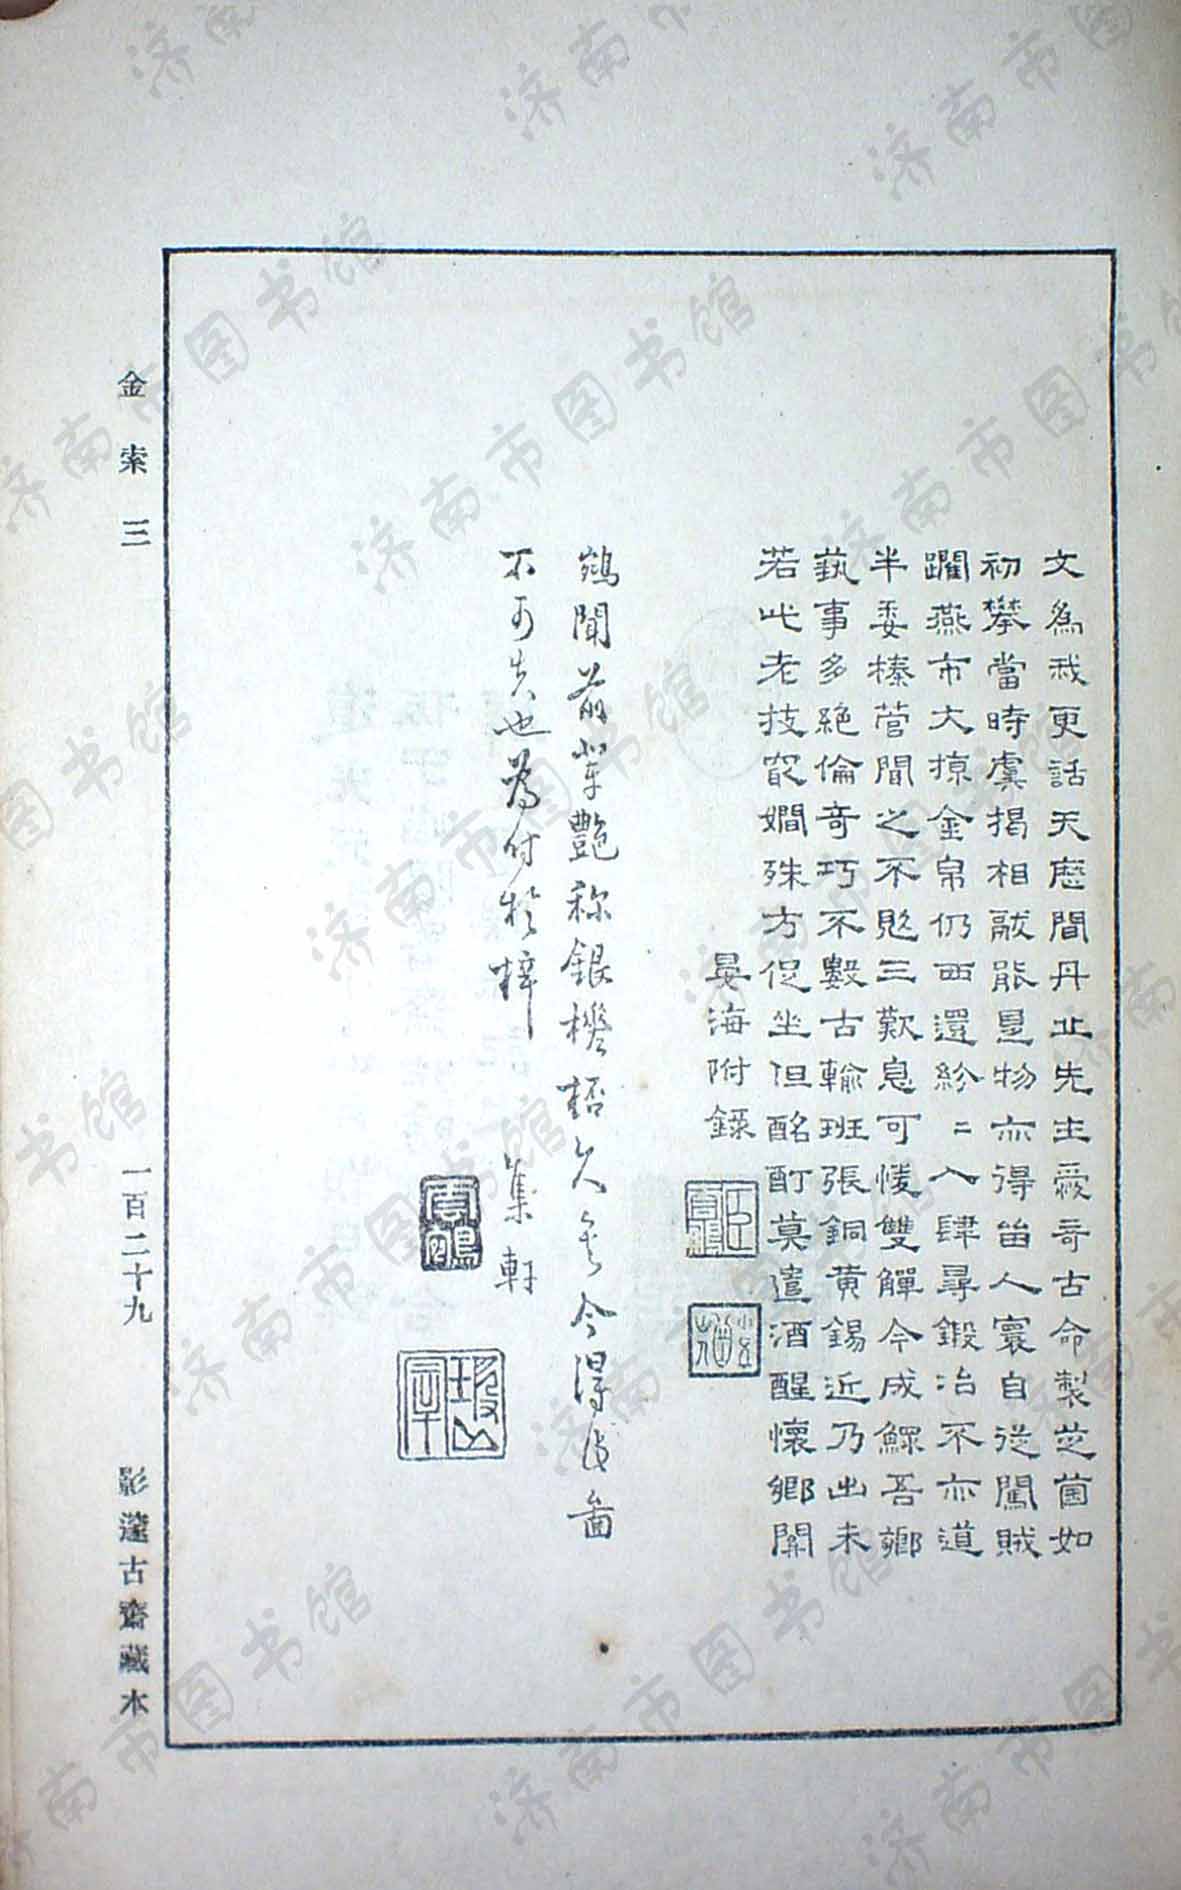 文為我更話天歷間丹丘先生愛奇古命製芝菌如
初攀當時虞揭相酬能是物亦得留人寰自從闖賊
躙燕市大掠金帛仍西還紛二入肆尋鍛冶不亦道
半委榛菅聞之不覺三歎息可惜雙觶今成鰥吾鄉
執事多絕倫奇巧不數古輸班張銅黄錫近乃出未
若此老技最嫻殊方促坐但酩酊莫遣酒醒懷鄉關
晏海附錄
鵷聞前輩艷稱銀槎桮久矣今得此啚
不可失也為付於梓 集軒
金索三
一百二十九
影邃古齋藏本
济南市图书馆